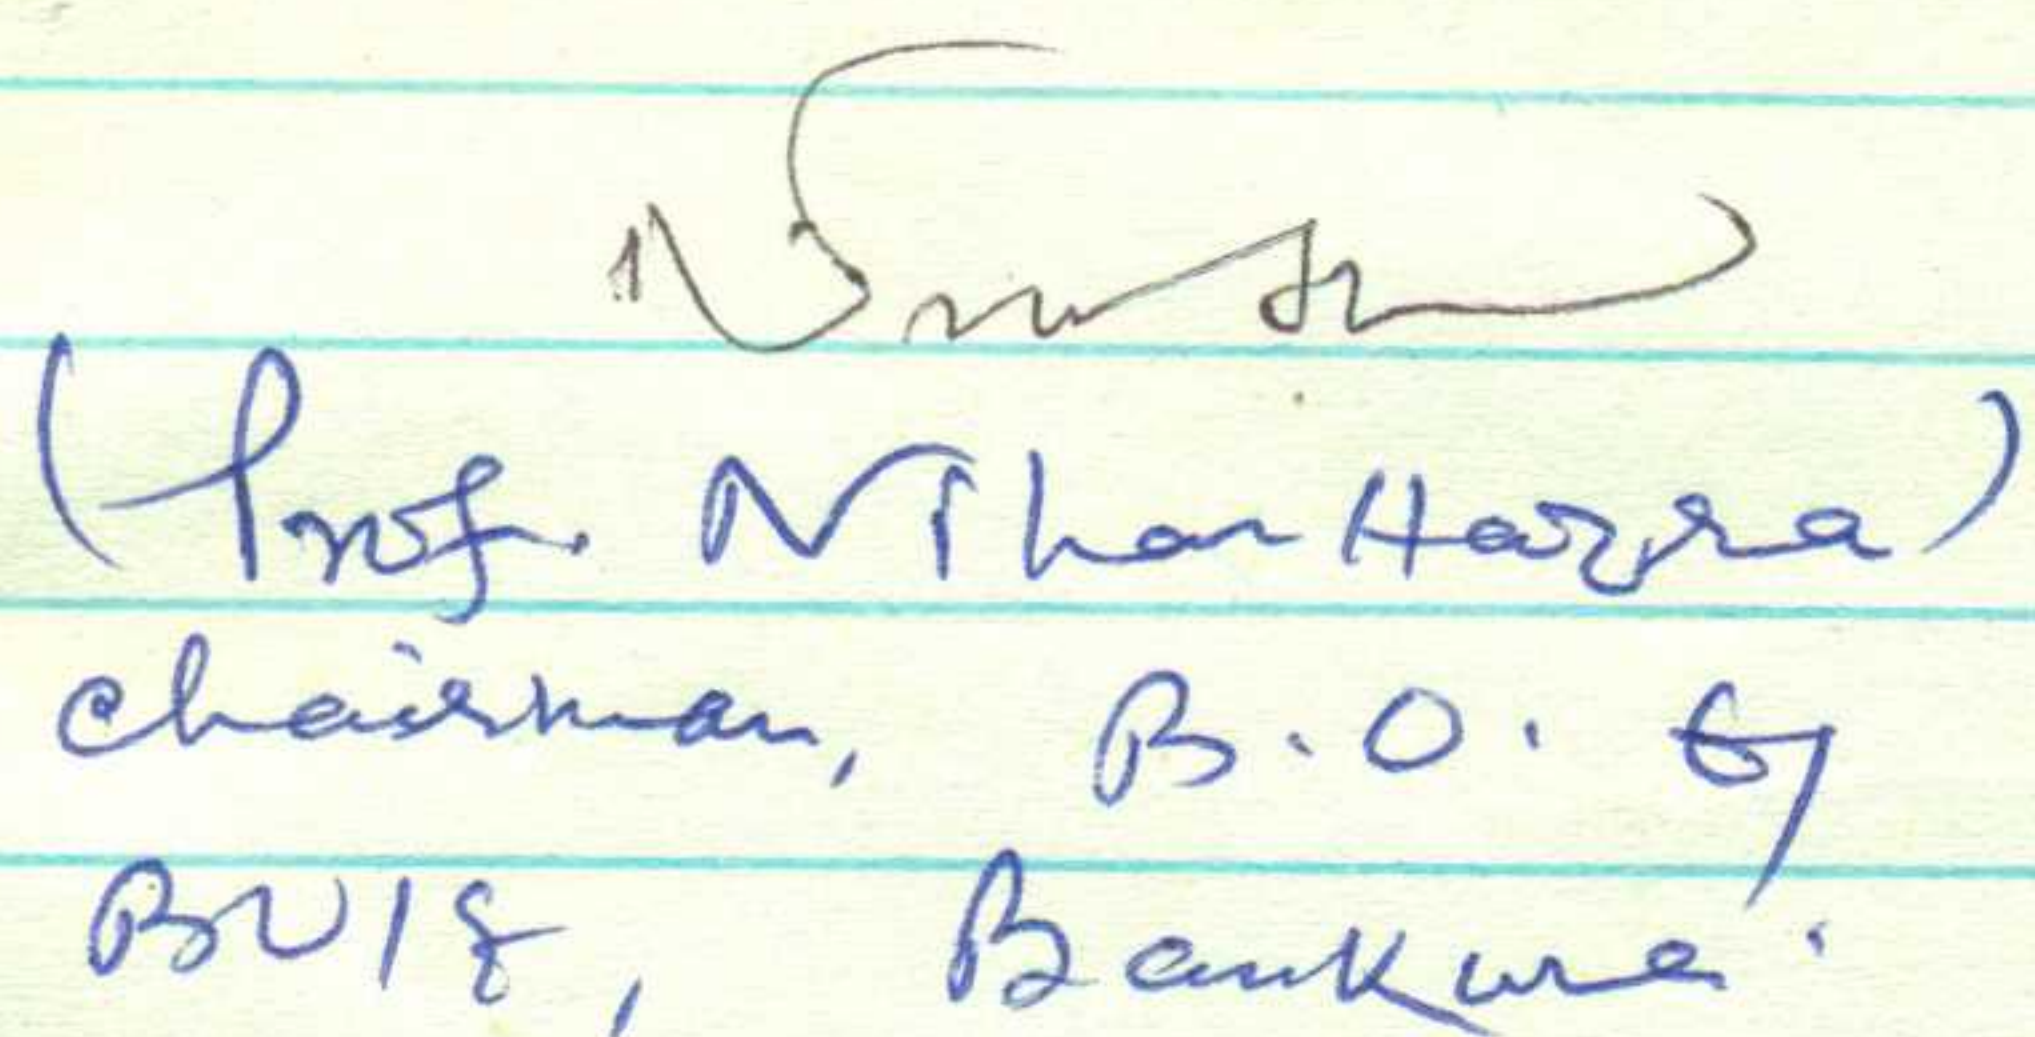 (Prof. Nihar Hazra)
Chairman, B.O. G
Bankura.